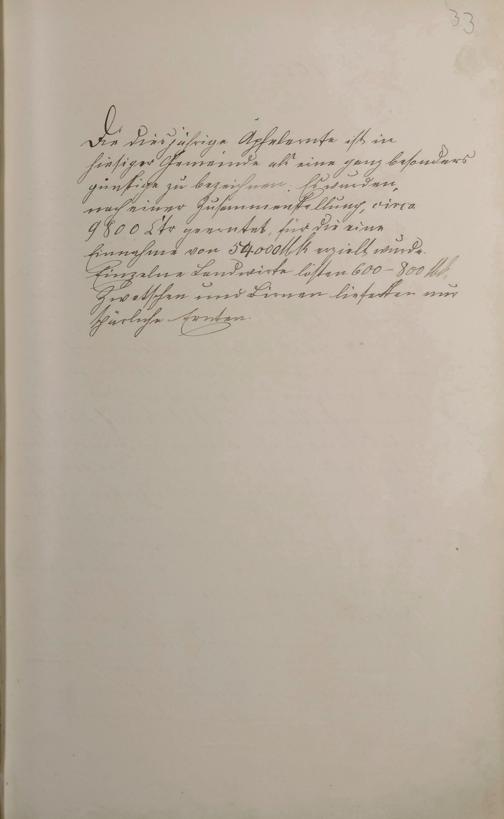 33
Die diesjährige Apfelernte ist in
hiesiger Gemeinde als eine ganz besonders
günstige zu bezeichnen. Es wurden,
nach einer Zusammenstellung, circa
9800 Ctr geerntet, für die eine
Einnahme von 54000 Mk erzielt wurde.
Einzelne Landwirte lösten 600-800 Mk.
Zwetschen und Birnen lieferten nur
spärliche Ernten.